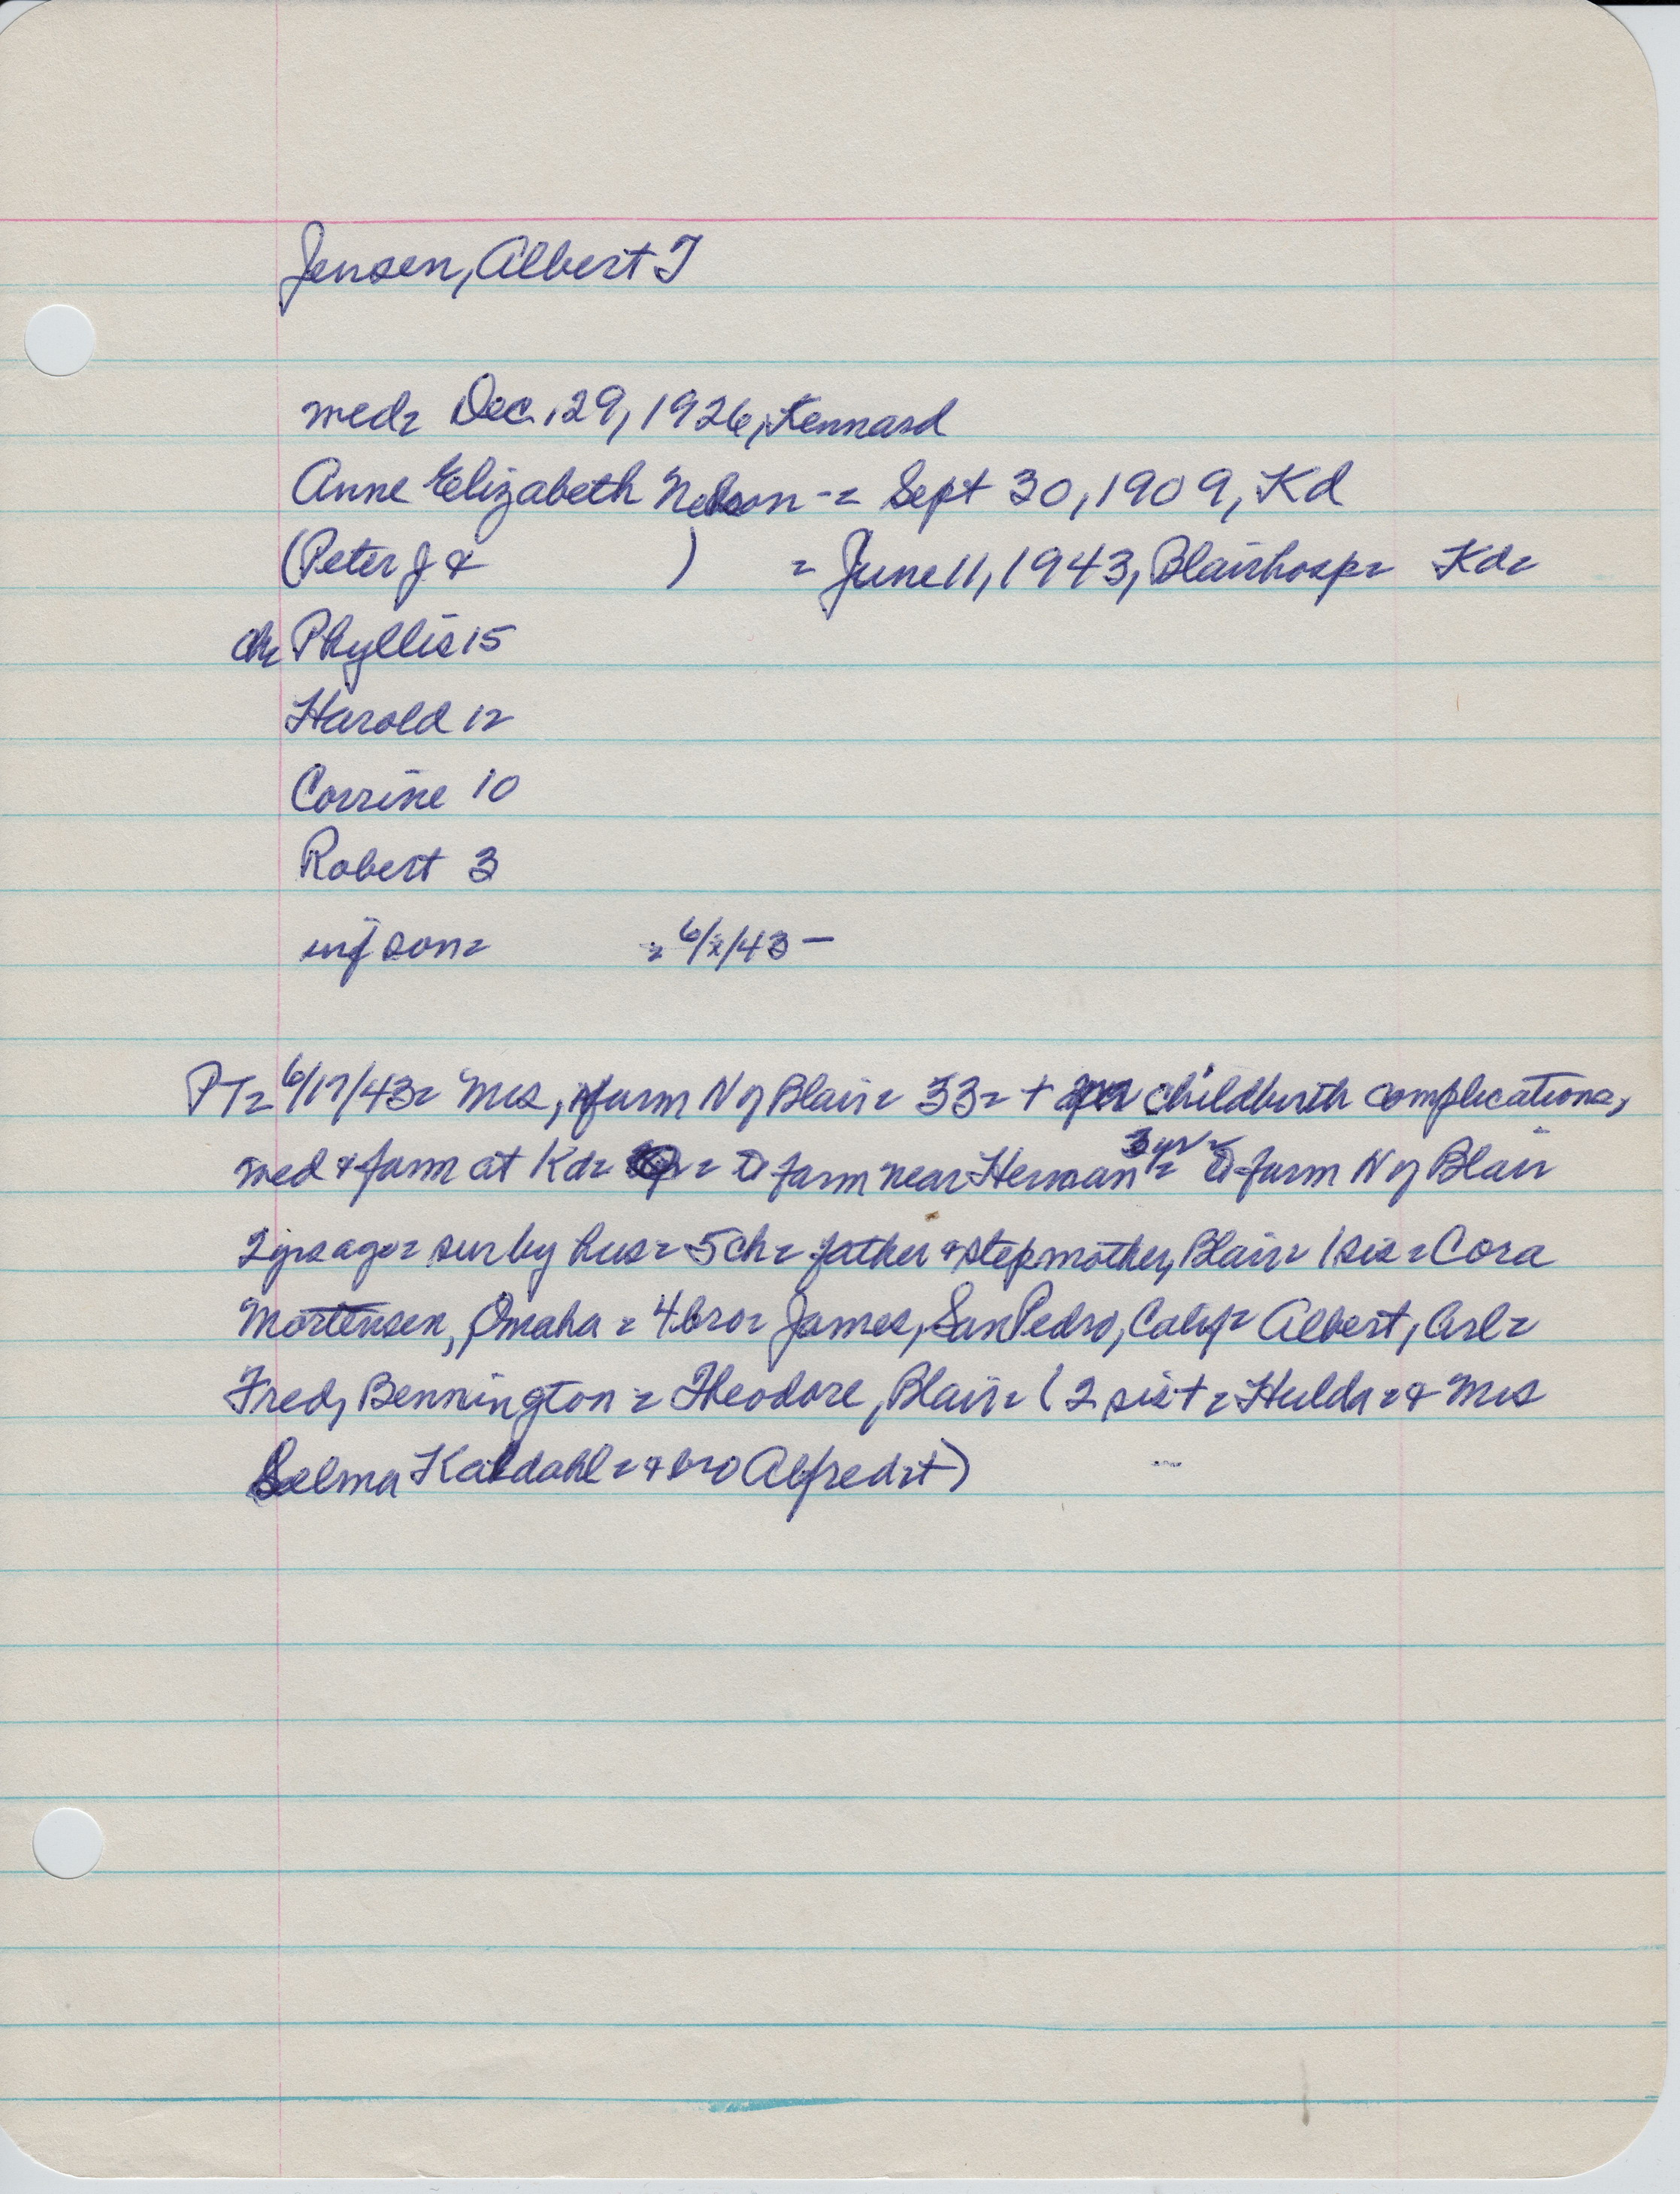 Jensen, Albert T
med= Dec. 29, 1926, Kennard
Anne Elizabeth Nelson -= Sept 30, 1909, Kd
(Peter J & ) = June 11, 1943, Blair hosp= Kd=
ch= Phyllis 15
Harold 12
Corrine 10
Robert 3
inf son= = 6/x/43 —
PT= 6/17/43= Mrs, farm N of Blair= 33= + childbirth complications,
med & farm at Kd= = farm near Herman 3 yr= = farm N of Blair
2 yrs ago= sur by hus= 5 ch= father & stepmother, Blair= 1 sis= Cora
Mortensen, Omaha = 4 bro= James, San Pedro, Calif= Albert, Carl=
Fred, Bennington = Theodore, Blair= (2 sis + = Hulda = & Mrs
Selma Kaldahl = & bro Alfred=+)